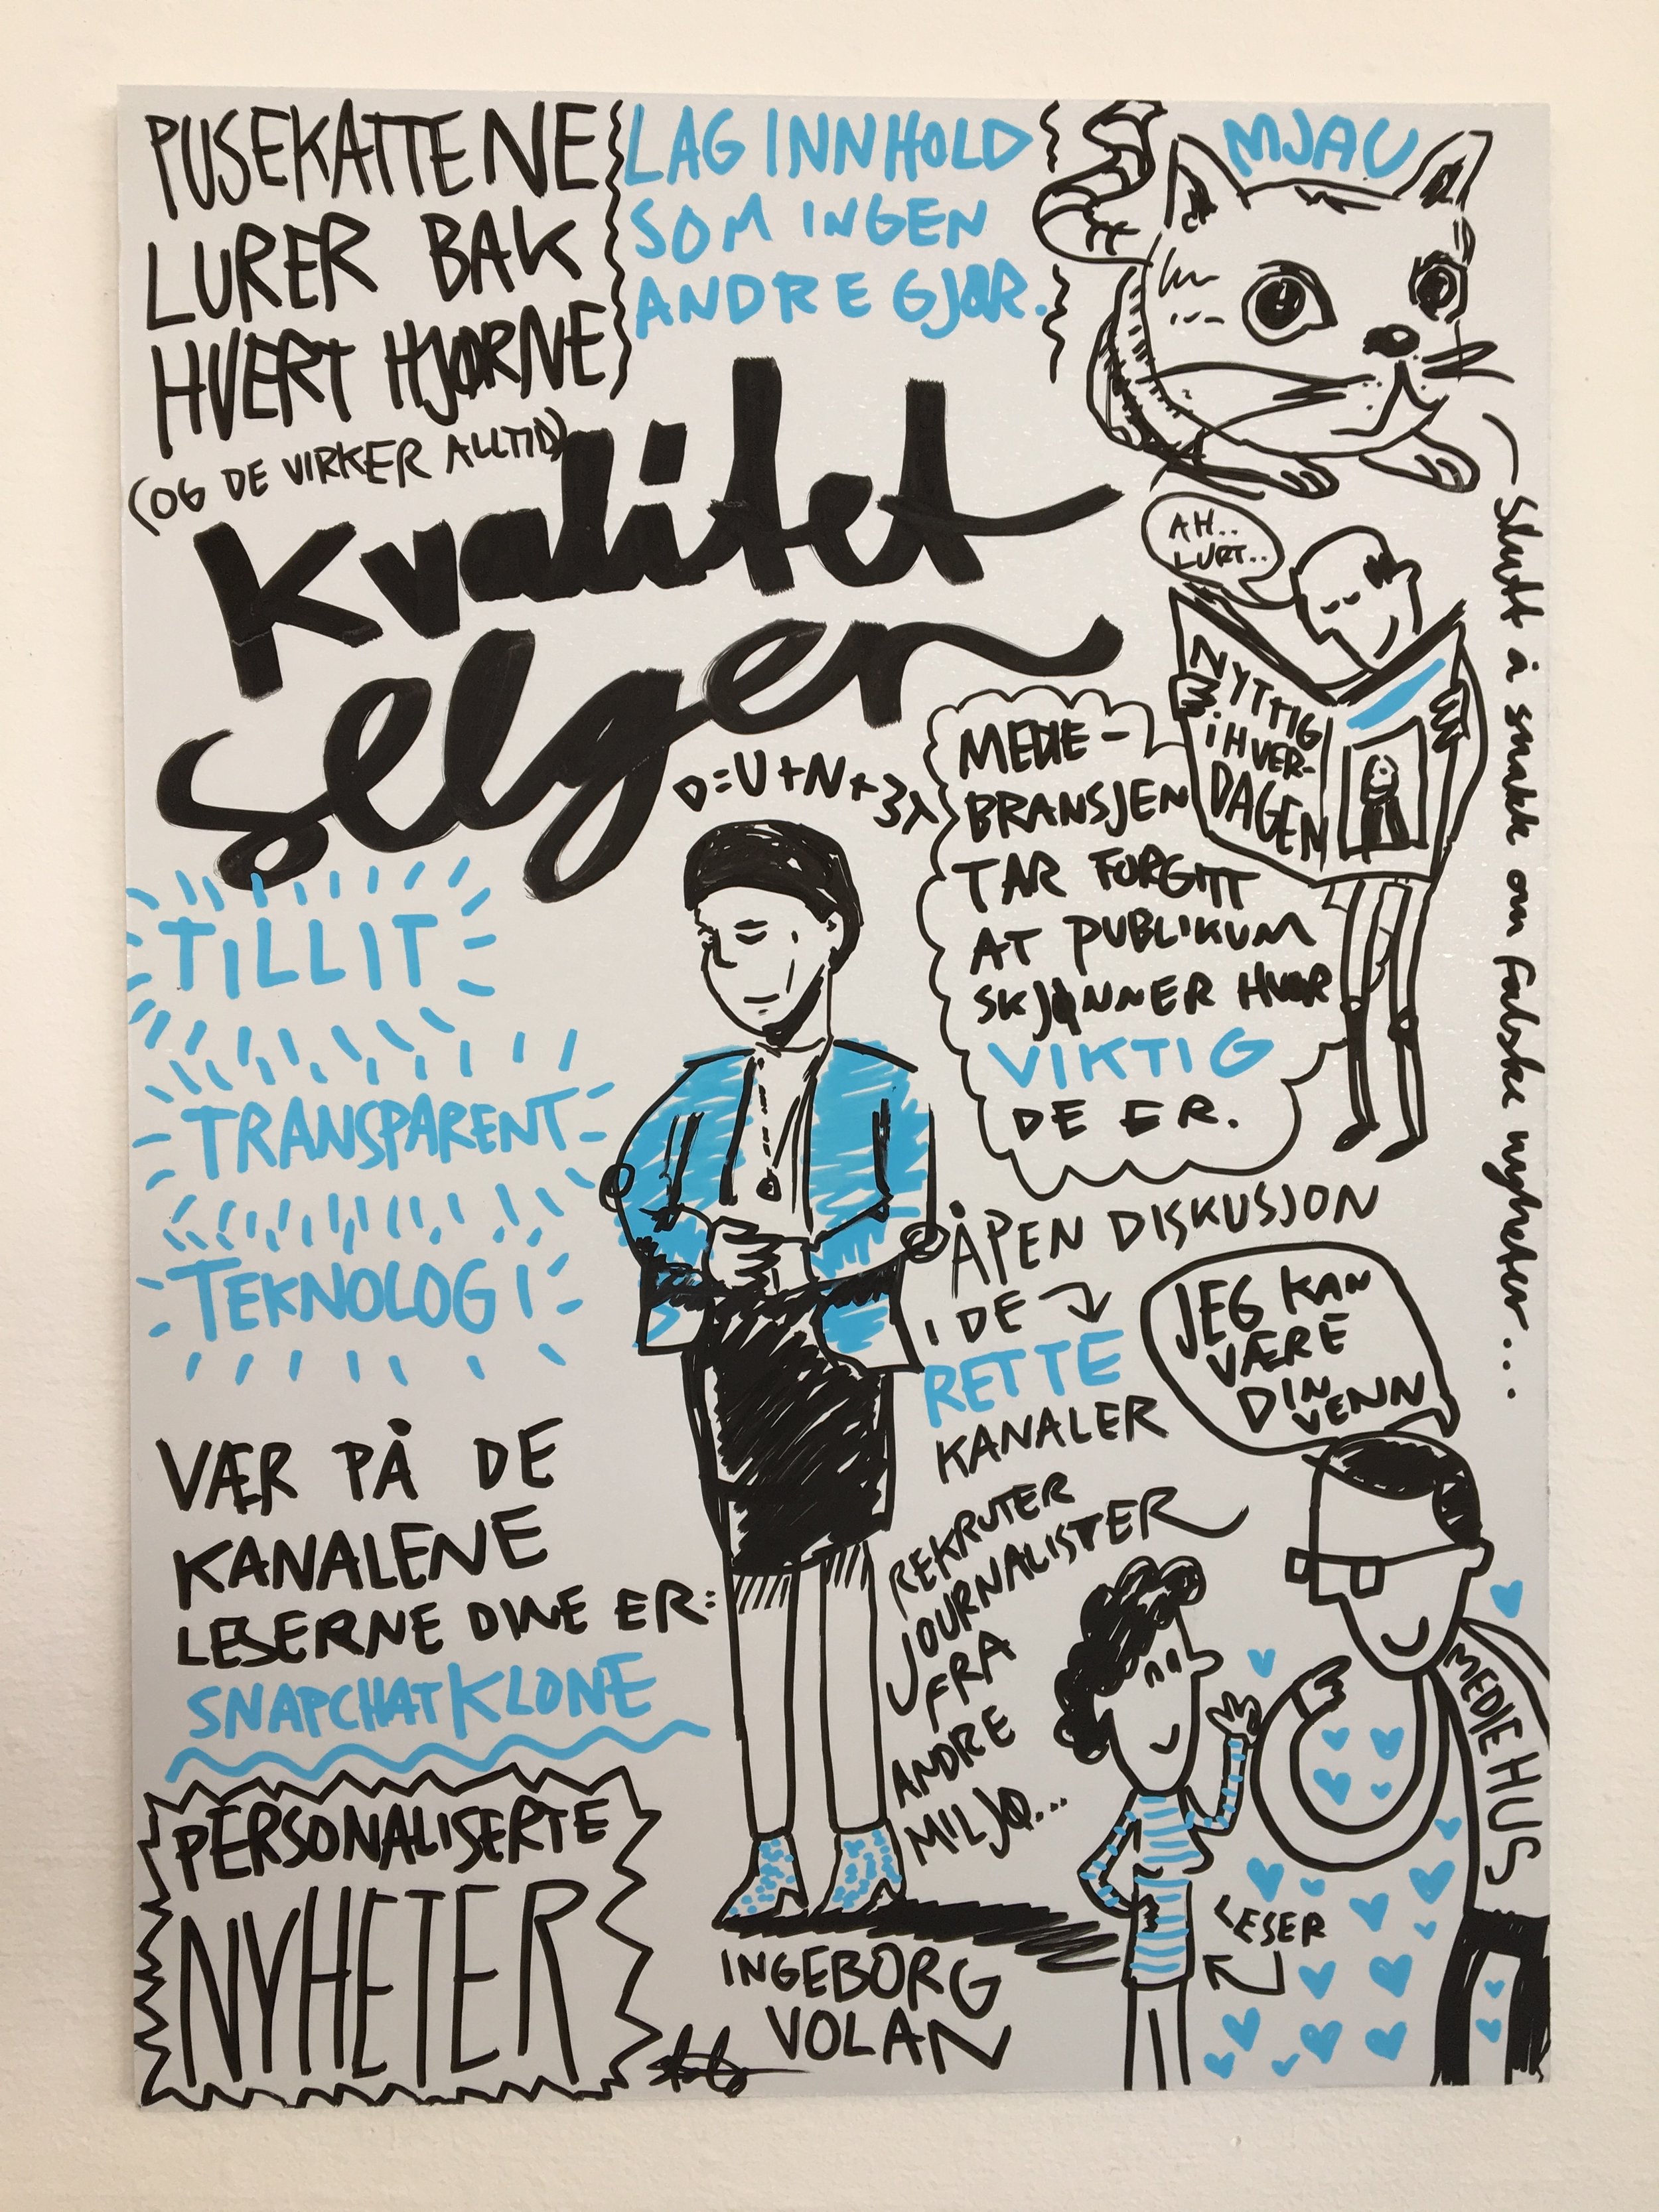 PUSEKATTENE
LURER BAK
HVERT HJØRNE
(OG DE VIRKER ALLTID)
LAG INNHOLD
SOM INGEN
ANDRE GJØR.
MJAU
Slutt å snakk om falske nyheter...
Kvalitet
selger
AH..
LURT..
NYTTIG
i HVER-
DAGEN
MEDIE-
BRANSJEN
TAR FORGITT
AT PUBLIKUM
SKJØNNER HVOR
VIKTIG
DE ER.
TiLLIT
TRANSPARENT
TEKNOLOGI
ÅPEN DISKUSJON
I DE
RETTE
KANALER
JEG KAN
VÆRE
DIN
VENN
VÆR PÅ DE
KANALENE
LESERNE DINE ER:
SNAPCHATKLONE
REKRUTER
JOURNALISTER
FRA
ANDRE
MILJØ...
MEDIEHUS
LESER
PERSONALISERTE
NYHETER
INGEBORG
VOLAN